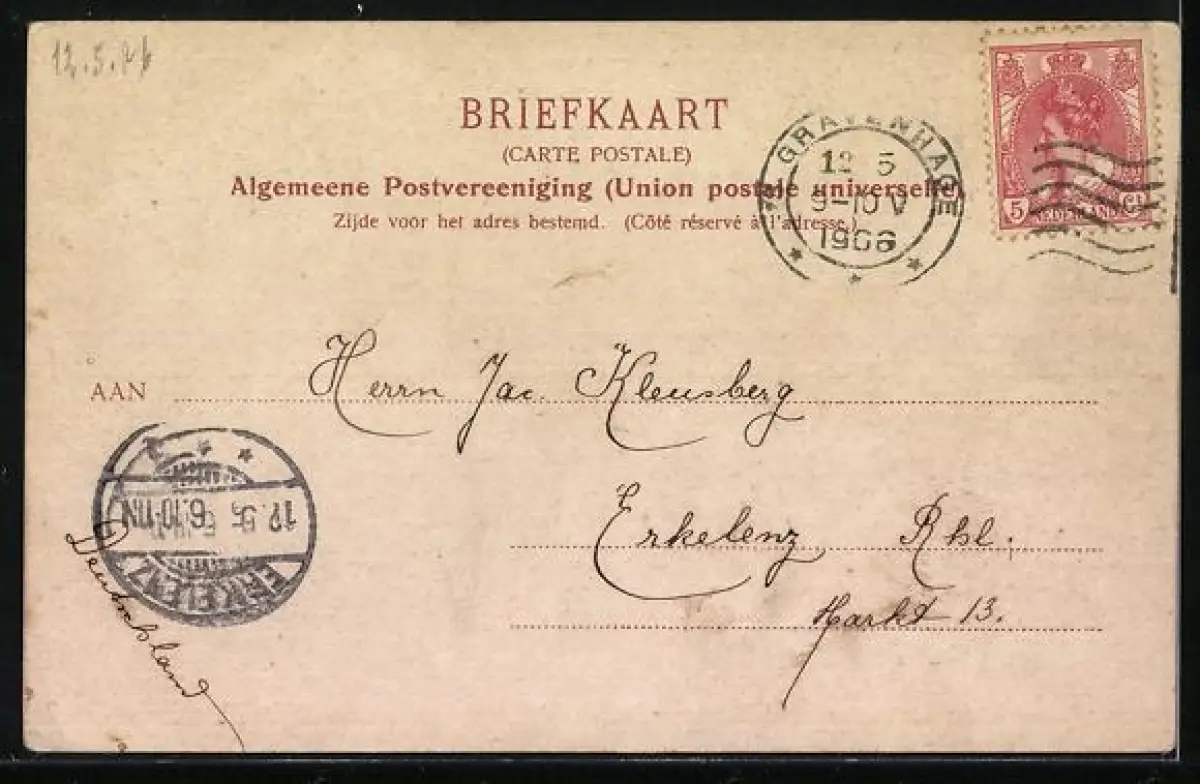 12.5.06
BRIEFKAART
(CARTE POSTALE)
Algemeene Postvereeniging (Union postale universelle)
Zijde voor het adres bestemd. (Côté réservé à l'adresse.)
'S GRAVENHAGE
12 5
9-10 V
1906
5 NEDERLAND Ct
AAN Herrn Jac. Kleusberg
Erkelenz Rhl.
Markt 13.
ERKELENZ
12.5.06.10-11N
Deutschland